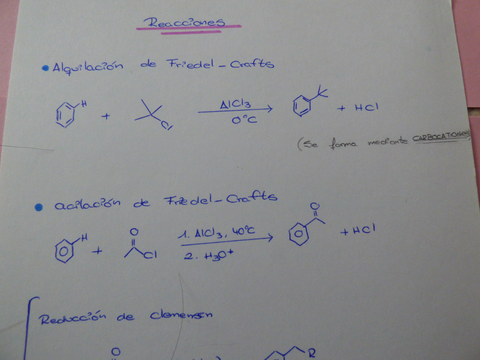 Reacciones
Alquilación de Friedel-Crafts
H + Cl AlCl3 0°C + HCl
(Se forma mediante CARBOCATIONES
acilación de Friedel-Crafts
H + O Cl 1. AlCl3, 40°C 2. H3O+ O + HCl
Reducción de clemensen
R